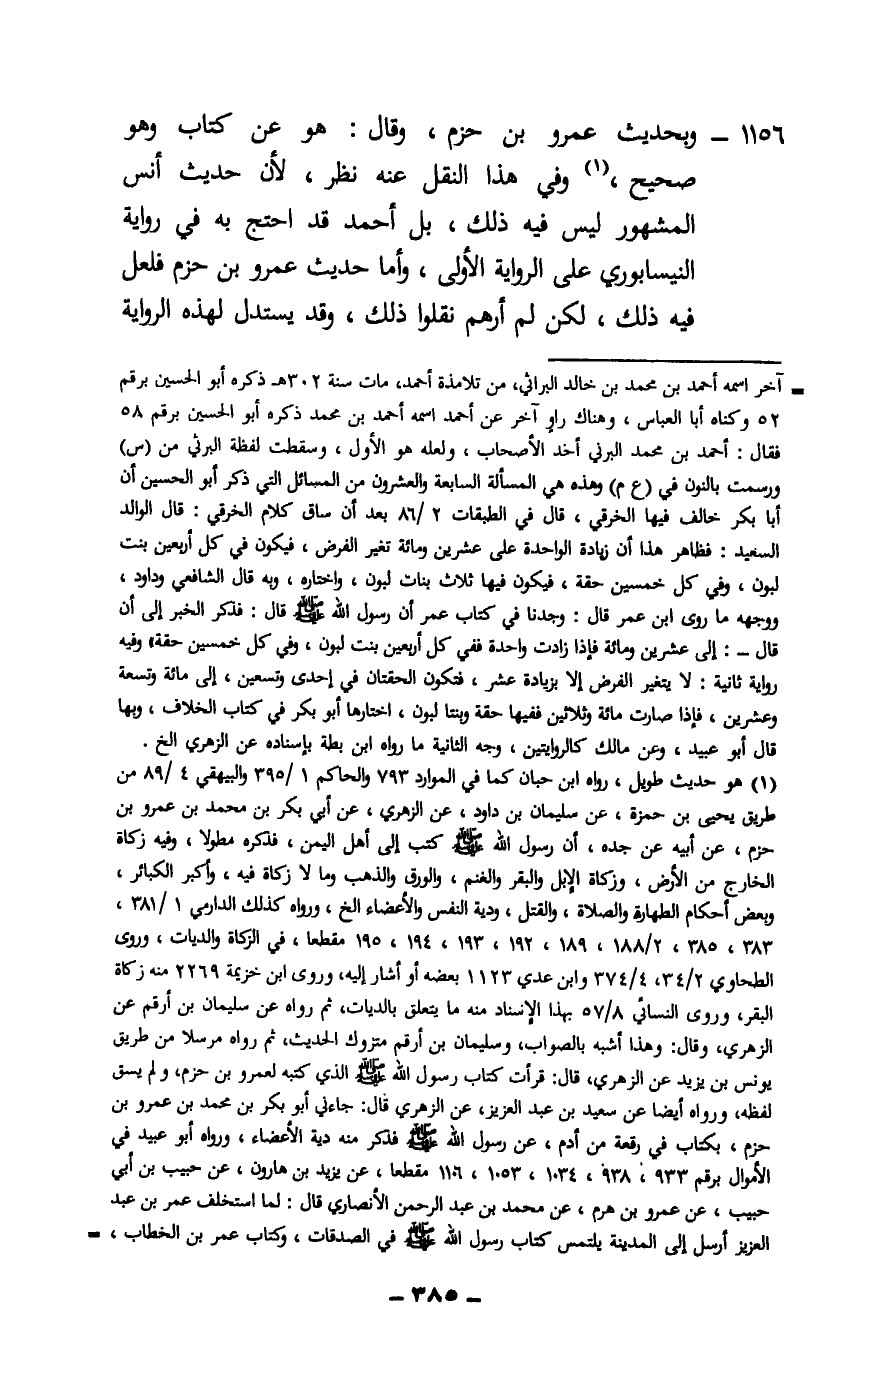 ١١٥٦ – وبحديث عمرو بن حزم ، وقال : هو عن كتاب وهو
صحيح ،(١) وفي هذا النقل عنه نظر ، لأن حديث أنس
المشهور ليس فيه ذلك ، بل أحمد قد احتج به في رواية
النيسابوري على الرواية الأولى ، وأما حديث عمرو بن حزم فلعل
فيه ذلك ، لكن لم أرهم نقلوا ذلك ، وقد يستدل لهذه الرواية
= آخر اسمه أحمد بن محمد بن خالد البراثي، من تلامذة أحمد، مات سنة ٣٠٢هـ ذكره أبو الحسين برقم
٥٢ وكناه أبا العباس ، وهناك راو آخر عن أحمد اسمه أحمد بن محمد ذكره أبو الحسين برقم ٥٨
فقال : أحمد بن محمد البرني أخد الأصحاب ، ولعله هو الأول ، وسقطت لفظة البرثي من (س)
ورسمت بالنون في (ع م) وهذه هي المسألة السابعة والعشرون من المسائل التي ذكر أبو الحسين أن
أبا بكر خالف فيها الخرقي ، قال في الطبقات ٢ /٨٦ بعد أن ساق كلام الخرقي : قال الوالد
السعيد : فظاهر هذا أن زيادة الواحدة على عشرين ومائة تغير الفرض ، فيكون في كل أربعين بنت
لبون ، وفي كل خمسين حقة ، فيكون فيها ثلاث بنات لبون ، واختاره ، وبه قال الشافعي وداود ،
ووجهه ما روى ابن عمر قال : وجدنا في كتاب عمر أن رسول الله ﷺ قال : فذكر الخبر إلى أن
قال – : إلى عشرين ومائة فإذا زادت واحدة ففي كل أربعين بنت لبون ، وفي كل خمسين حقة» وفيه
رواية ثانية : لا يتغير الفرض إلا بزيادة عشر ، فتكون الحقتان في إحدى وتسعين ، إلى مائة وتسعة
وعشرين ، فإذا صارت مائة وثلاثين ففيها حقة وبنتا لبون ، اختارها أبو بكر في كتاب الخلاف ، وبها
قال أبو عبيد ، وعن مالك كالروايتين ، وجه الثانية ما رواه ابن بطة بإسناده عن الزهري الخ .
(١) هو حديث طويل ، رواه ابن حبان كما في الموارد ٧٩٣ والحاكم ١ /٣٩٥ والبيهقي ٤ /٨٩ من
طريق يحيى بن حمزة ، عن سليمان بن داود ، عن الزهري ، عن أبي بكر بن محمد بن عمرو بن
حزم ، عن أبيه عن جده ، أن رسول الله ﷺ كتب إلى أهل اليمن ، فذكره مطولا ، وفيه زكاة
الخارج من الأرض ، وزكاة الإبل والبقر والغنم ، والورق والذهب وما لا زكاة فيه ، وأكبر الكبائر ،
وبعض أحكام الطهارة والصلاة ، والقتل ، ودية النفس والأعضاء الخ ، ورواه كذلك الدارمي ١ /٣٨١ ،
٣٨٣ ، ٣٨٥ ، ١٨٨/٢ ، ١٨٩ ، ١٩٢ ، ١٩٣ ، ١٩٤ ، ١٩٥ مقطعا ، في الزكاة والديات ، وروى
الطحاوي ٣٤/٢، ٣٧٤/٤ وابن عدي ١١٢٣ بعضه أو أشار إليه، وروى ابن خزيمة ٢٢٦٩ منه زكاة
البقر، وروى النسائي ٥٧/٨ بهذا الإسناد منه ما يتعلق بالديات، ثم رواه عن سليمان بن أرقم عن
الزهري، وقال: وهذا أشبه بالصواب، وسليمان بن أرقم متروك الحديث، ثم رواه مرسلا من طريق
يونس بن يزيد عن الزهري، قال: قرأت كتاب رسول الله ﷺ الذي كتبه لعمرو بن حزم، ولم يسق
لفظه، ورواه أيضا عن سعيد بن عبد العزيز، عن الزهري قال: جاءني أبو بكر بن محمد بن عمرو بن
حزم ، بكتاب في رقعة من أدم ، عن رسول الله ﷺ فذكر منه دية الأعضاء ، ورواه أبو عبيد في
الأموال برقم ٩٣٣ ، ٩٣٨ ، ١٠٣٤ ، ١٠٥٣ ، ١١٠٦ مقطعا ، عن يزيد بن هارون ، عن حبيب بن أبي
حبيب ، عن عمرو بن هرم ، عن محمد بن عبد الرحمن الأنصاري قال : لما استخلف عمر بن عبد
العزيز أرسل إلى المدينة يلتمس كتاب رسول الله ﷺ في الصدقات ، وكتاب عمر بن الخطاب ، =
– ٣٨٥ –